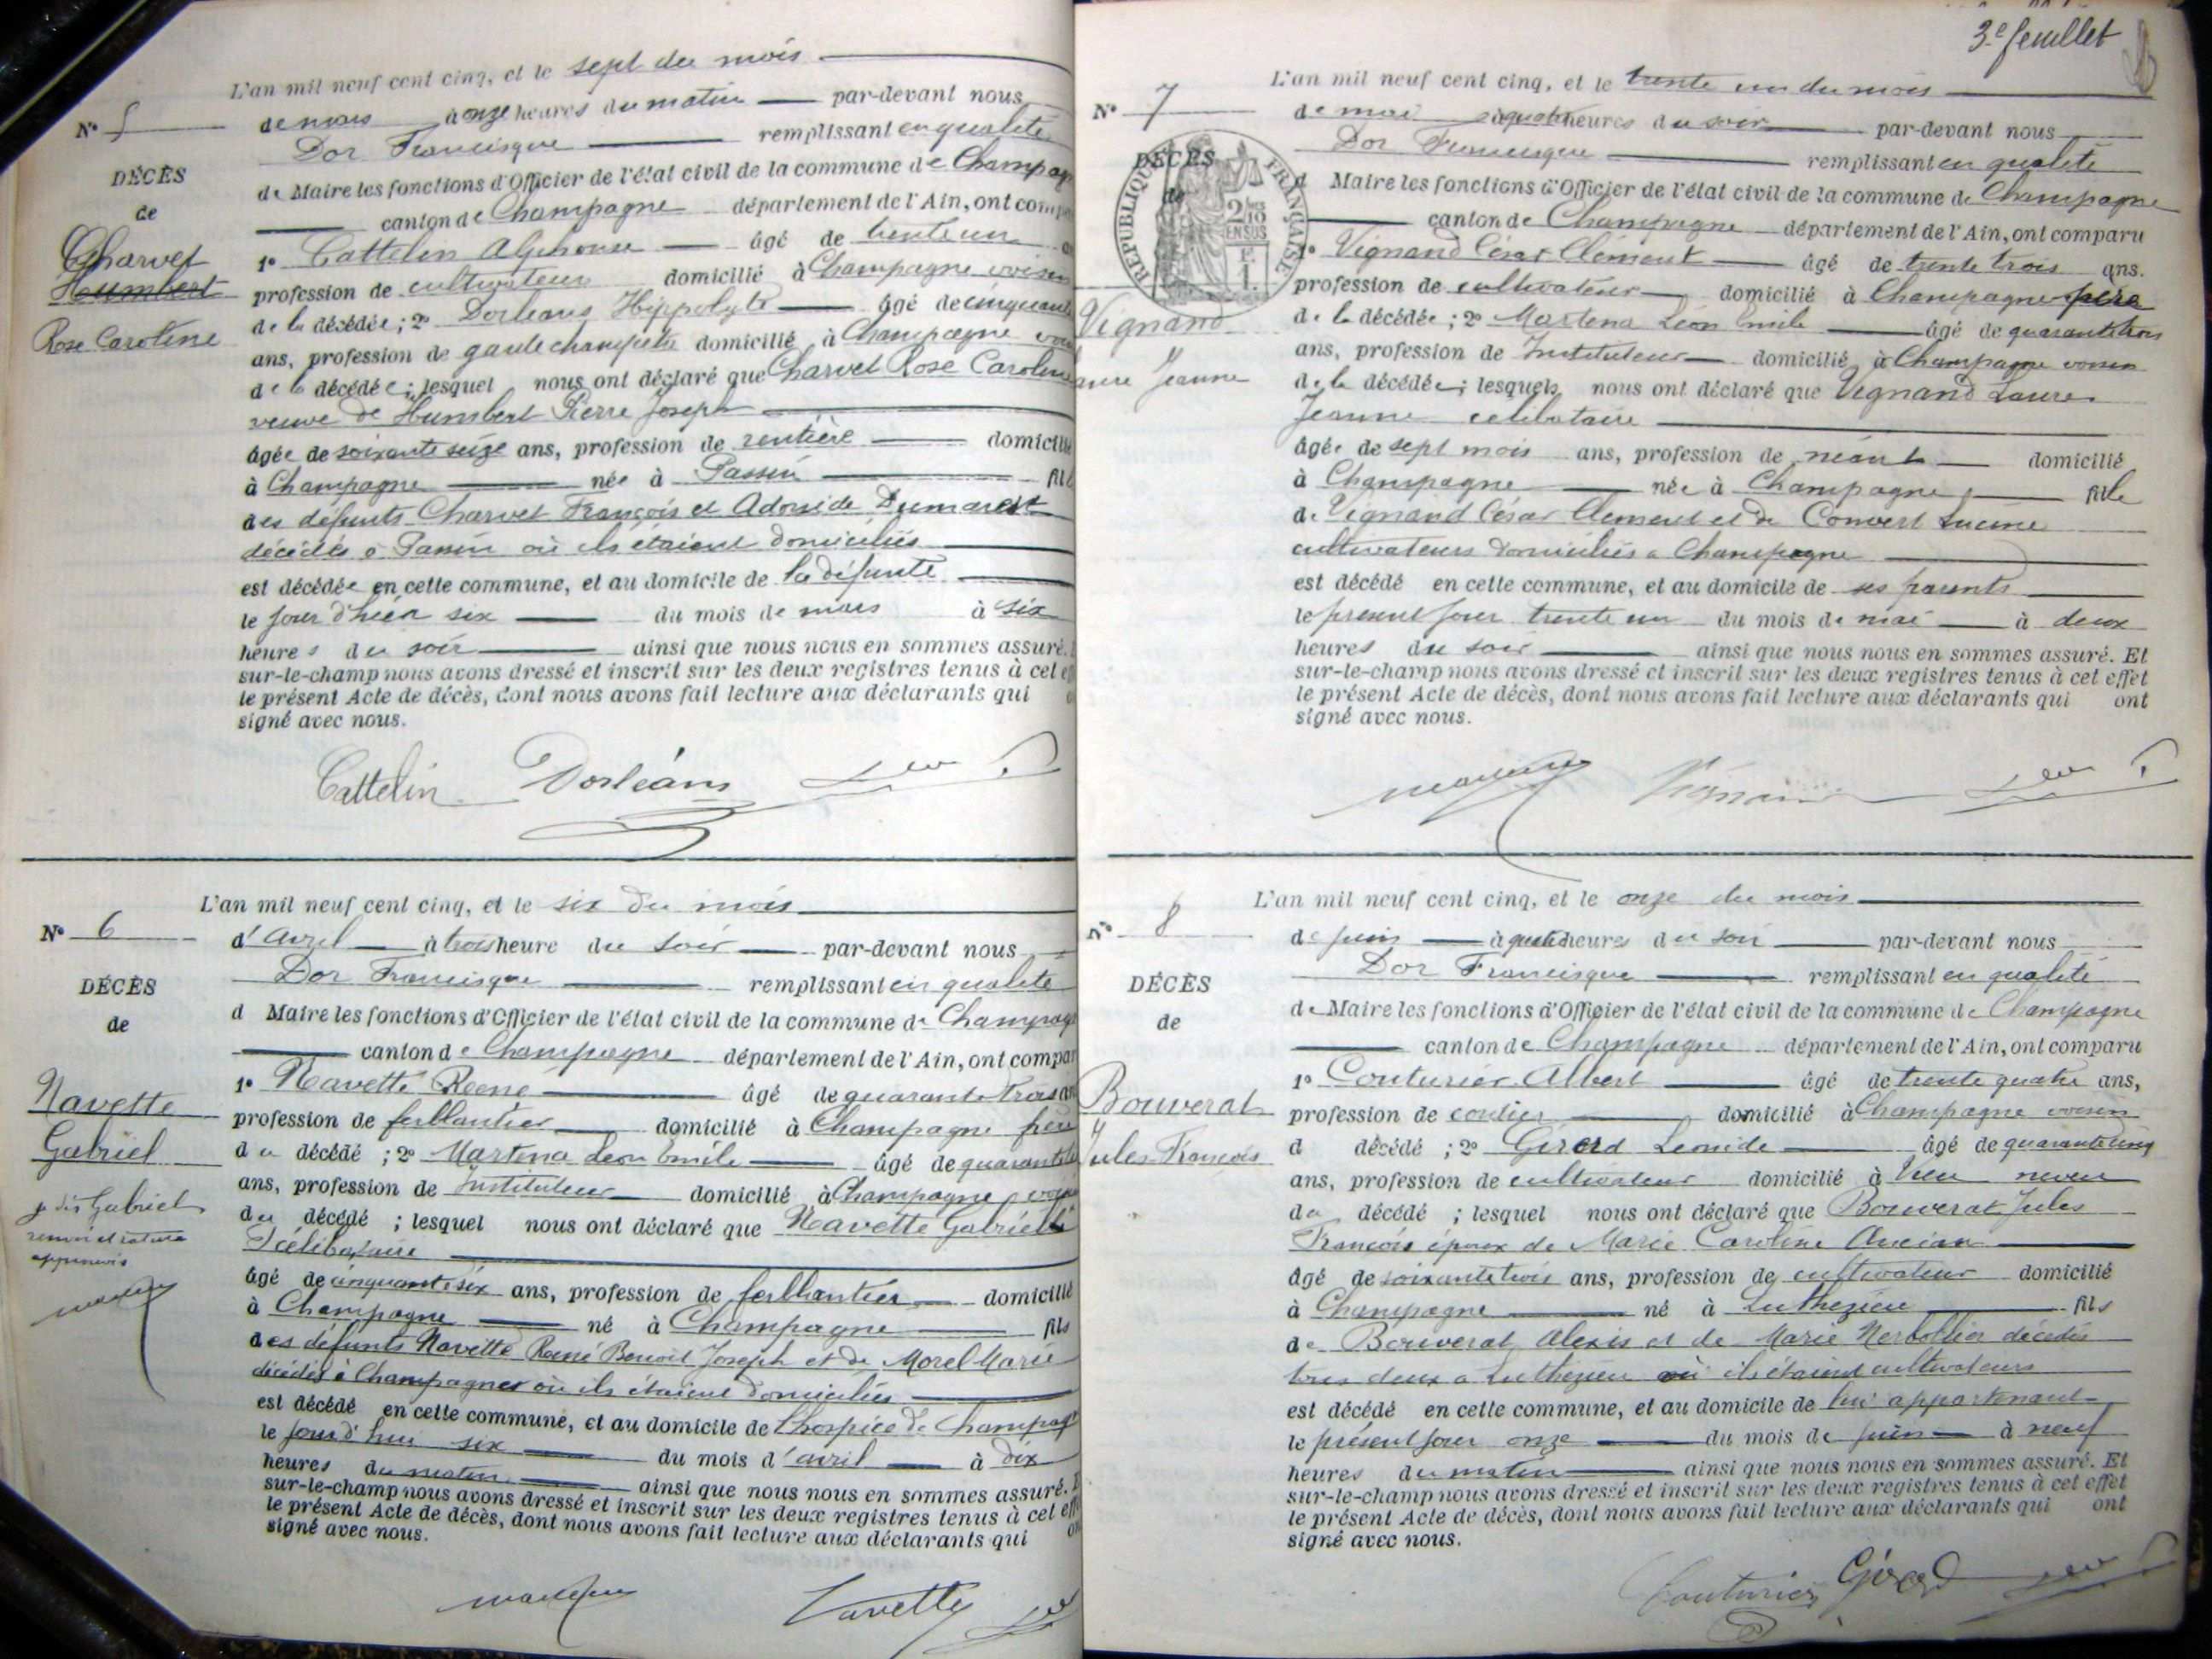 L'an mil neuf cent cinq, et le sept du mois
N° 5
de mars à onze heures du matin par-devant nous
Dor Francisque remplissant en qualité
DÉCÈS
de Maire les fonctions d'Officier de l'état civil de la commune de Champag
de
canton de Champagne département de l'Ain, ont comp
Charvet
Humbert
Rose Caroline
1° Cattelin Alphonse âgé de trente un
profession de cultivateur domicilié à Champagne voisin
de la décédée ; 2° Dorleans Hippolyte âgé de cinquante
ans, profession de garde champêtre domicilié à Champagne
de la décédée ; lesquel nous ont déclaré que Charvet Rose Caroline
veuve de Humbert Pierre Joseph
âgée de soixante seize ans, profession de rentière domicilié
à Champagne née à Passin fil
des défunts Charvet François et Adonide Dumarest
décédés à Passin où ils étaient domiciliés
est décédée en cette commune, et au domicile de la défunte
le jour d'hier six du mois de mars à six
heures du soir ainsi que nous nous en sommes assuré.
sur-le-champ nous avons dressé et inscrit sur les deux registres tenus à cet
le présent Acte de décès, dont nous avons fait lecture aux déclarants qui
signé avec nous.
Cattelin Dorléans
L'an mil neuf cent cinq, et le six du mois
N° 6
d'avril à trois heure du soir par-devant nous
Dor Francisque remplissant en qualité
DÉCÈS
de
d Maire les fonctions d'Officier de l'état civil de la commune de Champag
canton de Champagne département de l'Ain, ont compar
Navette
Gabriel
je dis Gabriel
renvoi et rature
approuvés
1° Navette René âgé de quarante trois an
profession de ferblantier domicilié à Champagne frère
du décédé ; 2° Martena Léon Emile âgé de quarante
ans, profession de Instituteur domicilié à Champagne voisin
du décédé ; lesquel nous ont déclaré que Navette Gabriel
célibataire
âgé de cinquante six ans, profession de ferblantier domicilié
à Champagne né à Champagne fils
des défunts Navette René Benoit Joseph et de Morel Marie
décédés à Champagne où ils étaient domiciliés
est décédé en cette commune, et au domicile de l'hospice de Champag
le jour d'hui six du mois d'avril à dix
heures du matin ainsi que nous nous en sommes assuré.
sur-le-champ nous avons dressé et inscrit sur les deux registres tenus à cet eff
le présent Acte de décès, dont nous avons fait lecture aux déclarants qui
signé avec nous.
Navette
3e feuillet
L'an mil neuf cent cinq, et le trente un du mois
N° 7
de mai à quatre heures du soir par-devant nous
Dor Francisque remplissant en qualité
DÉCÈS
de
RÉPUBLIQUE FRANÇAISE
2/10 EN SUS
F. 1.
d Maire les fonctions d'Officier de l'état civil de la commune de Champagne
canton de Champagne département de l'Ain, ont comparu
Vignand
Laure Jeanne
1° Vignand César Clément âgé de trente trois ans.
profession de cultivateur domicilié à Champagne père
de la décédée ; 2° Martena Léon Emile âgé de quarante trois
ans, profession de Instituteur domicilié à Champagne voisin
de la décédée ; lesquels nous ont déclaré que Vignand Laure
Jeanne célibataire
âgée de sept mois ans, profession de néant domicilié
à Champagne née à Champagne fille
de Vignand César Clément et de Convert Lucine
cultivateurs domiciliés à Champagne
est décédé en cette commune, et au domicile de ses parents
le présent jour trente un du mois de mai à deux
heures du soir ainsi que nous nous en sommes assuré. Et
sur-le-champ nous avons dressé et inscrit sur les deux registres tenus à cet effet
le présent Acte de décès, dont nous avons fait lecture aux déclarants qui ont
signé avec nous.
L'an mil neuf cent cinq, et le onze du mois
N° 8
de juin à quatre heures du soir par-devant nous
Dor Francisque remplissant en qualité
DÉCÈS
de
de Maire les fonctions d'Officier de l'état civil de la commune de Champagne
canton de Champagne département de l'Ain, ont comparu
Bouverat
Jules François
1° Couturier Albert âgé de trente quatre ans,
profession de domicilié à Champagne voisin
d décédé ; 2° Girerd Leonide âgé de quarante cinq
ans, profession de cultivateur domicilié à Vieu neveu
du décédé ; lesquel nous ont déclaré que Bouverat Jules
François époux de Marie Caroline Ancian
âgé de soixante trois ans, profession de cultivateur domicilié
à Champagne né à Luthezieu fils
de Bouverat Alexis et de Marie décédés
tous deux à Luthezieu où ils étaient cultivateurs
est décédé en cette commune, et au domicile de lui appartenant
le présent jour onze du mois de juin à neuf
heures du matin ainsi que nous nous en sommes assuré. Et
sur-le-champ nous avons dressé et inscrit sur les deux registres tenus à cet effet
le présent Acte de décès, dont nous avons fait lecture aux déclarants qui ont
signé avec nous.
Couturier Girerd